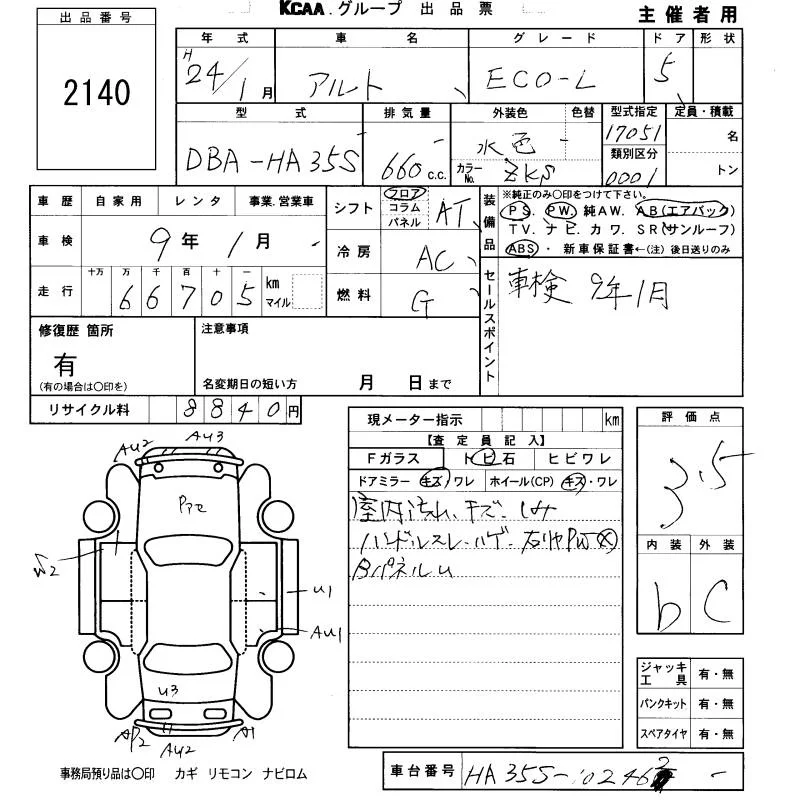 KCAA.グループ 出品票
主催者用
出品番号
2140
年式 車名 グレード ドア 形状
H24/1月 アルト ECO-L 5
型式 排気量 外装色 色替 型式指定 定員・積載
DBA-HA35S 660 c.c. 水色 カラーNo. ZKS 17051 名
類別区分
0001 トン
車歴 自家用 レンタ 事業.営業車
車検 9年1月
走行 十万 万 千 百 十 一
66705 km マイル
シフト フロア コラム パネル AT
冷房 AC
燃料 G
装備品 ※純正のみ〇印をつけて下さい。
PS. PW. 純AW. AB(エアバック)
TV. ナビ. カワ. SR(サンルーフ)
ABS・新車保証書←(注)後日送りのみ
セールスポイント 車検 9年1月
修復歴 箇所
有
(有の場合は〇印を)
注意事項
名変期日の短い方 月 日まで
リサイクル料 8840円
現メーター指示 km
【査定員記入】
Fガラス トビ石 ヒビワレ
ドアミラー キズ/ワレ ホイール(CP) キズ・ワレ
室内汚れ、キズ、しみ
ハンドルスレ・ハゲ
BパネルU
評価点
3.5
内装 外装
b C
ジャッキ工具 有・無
パンクキット 有・無
スペアタイヤ 有・無
AU2 AU3
U1
AU1
U3
AP2 AU2 A1
事務局預り品は〇印 カギ リモコン ナビロム
車台番号 HA35S-